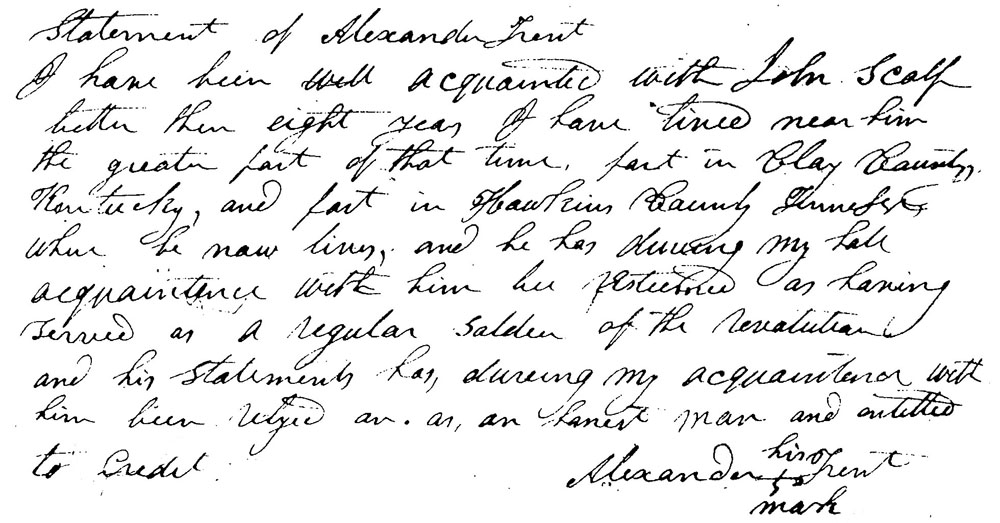 Statement of Alexander Trent
I have been well acquainted with John Scalf
better then eight years I have lived near him
the greater part of that time, part in Clay County,
Kentucky, and part in Hawkins County Tennessee
whre he now lives, and he has dureing my hole
acquaintence with him bee Esteemed as haveing
served as a regular Solder of the revolution
and his statements has, dureing my acquaintence with
him been relyed on. as, an honest man and entitled
to Credit.
Alexander his Trent
mark